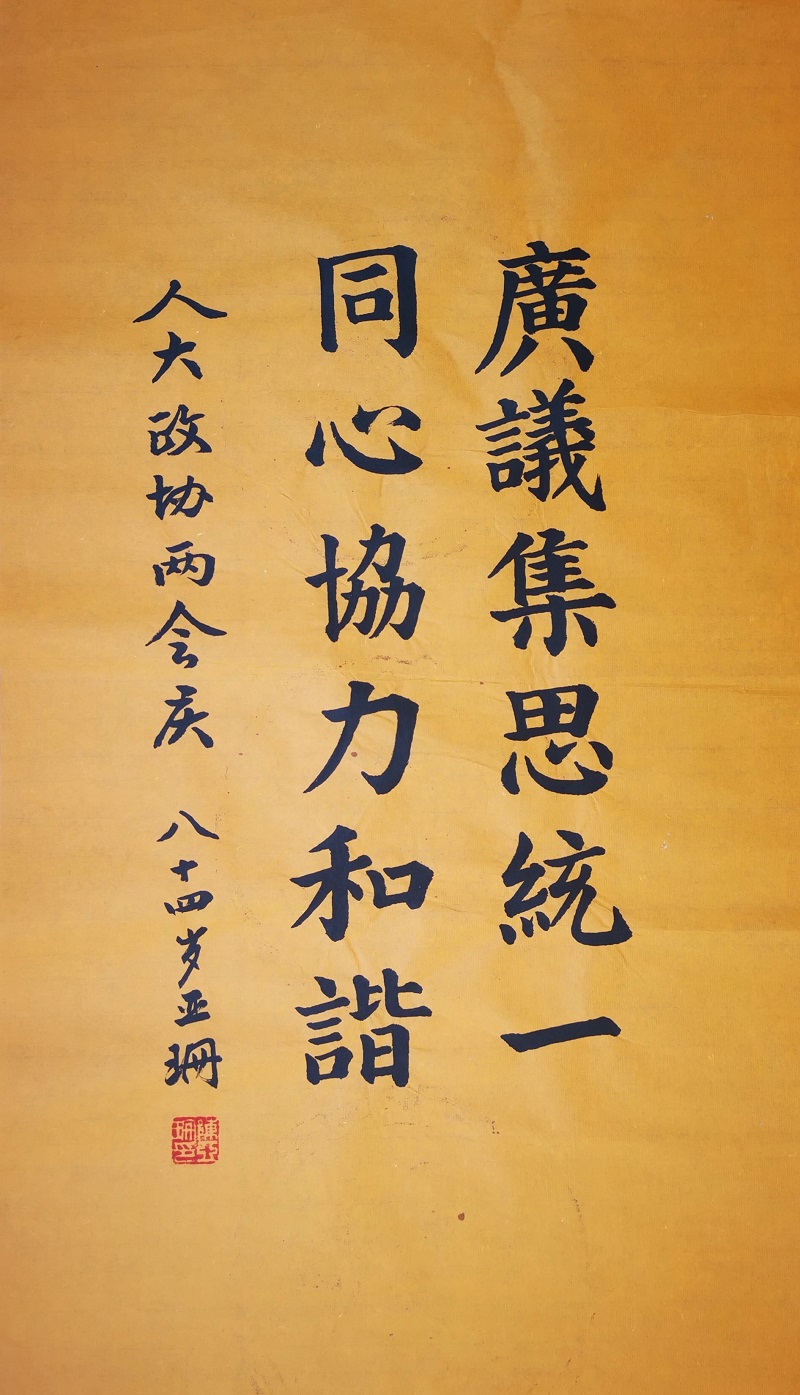 廣議集思統一
同心協力和諧
人大政协两会庆 八十四岁亚珊
陳亞珊印